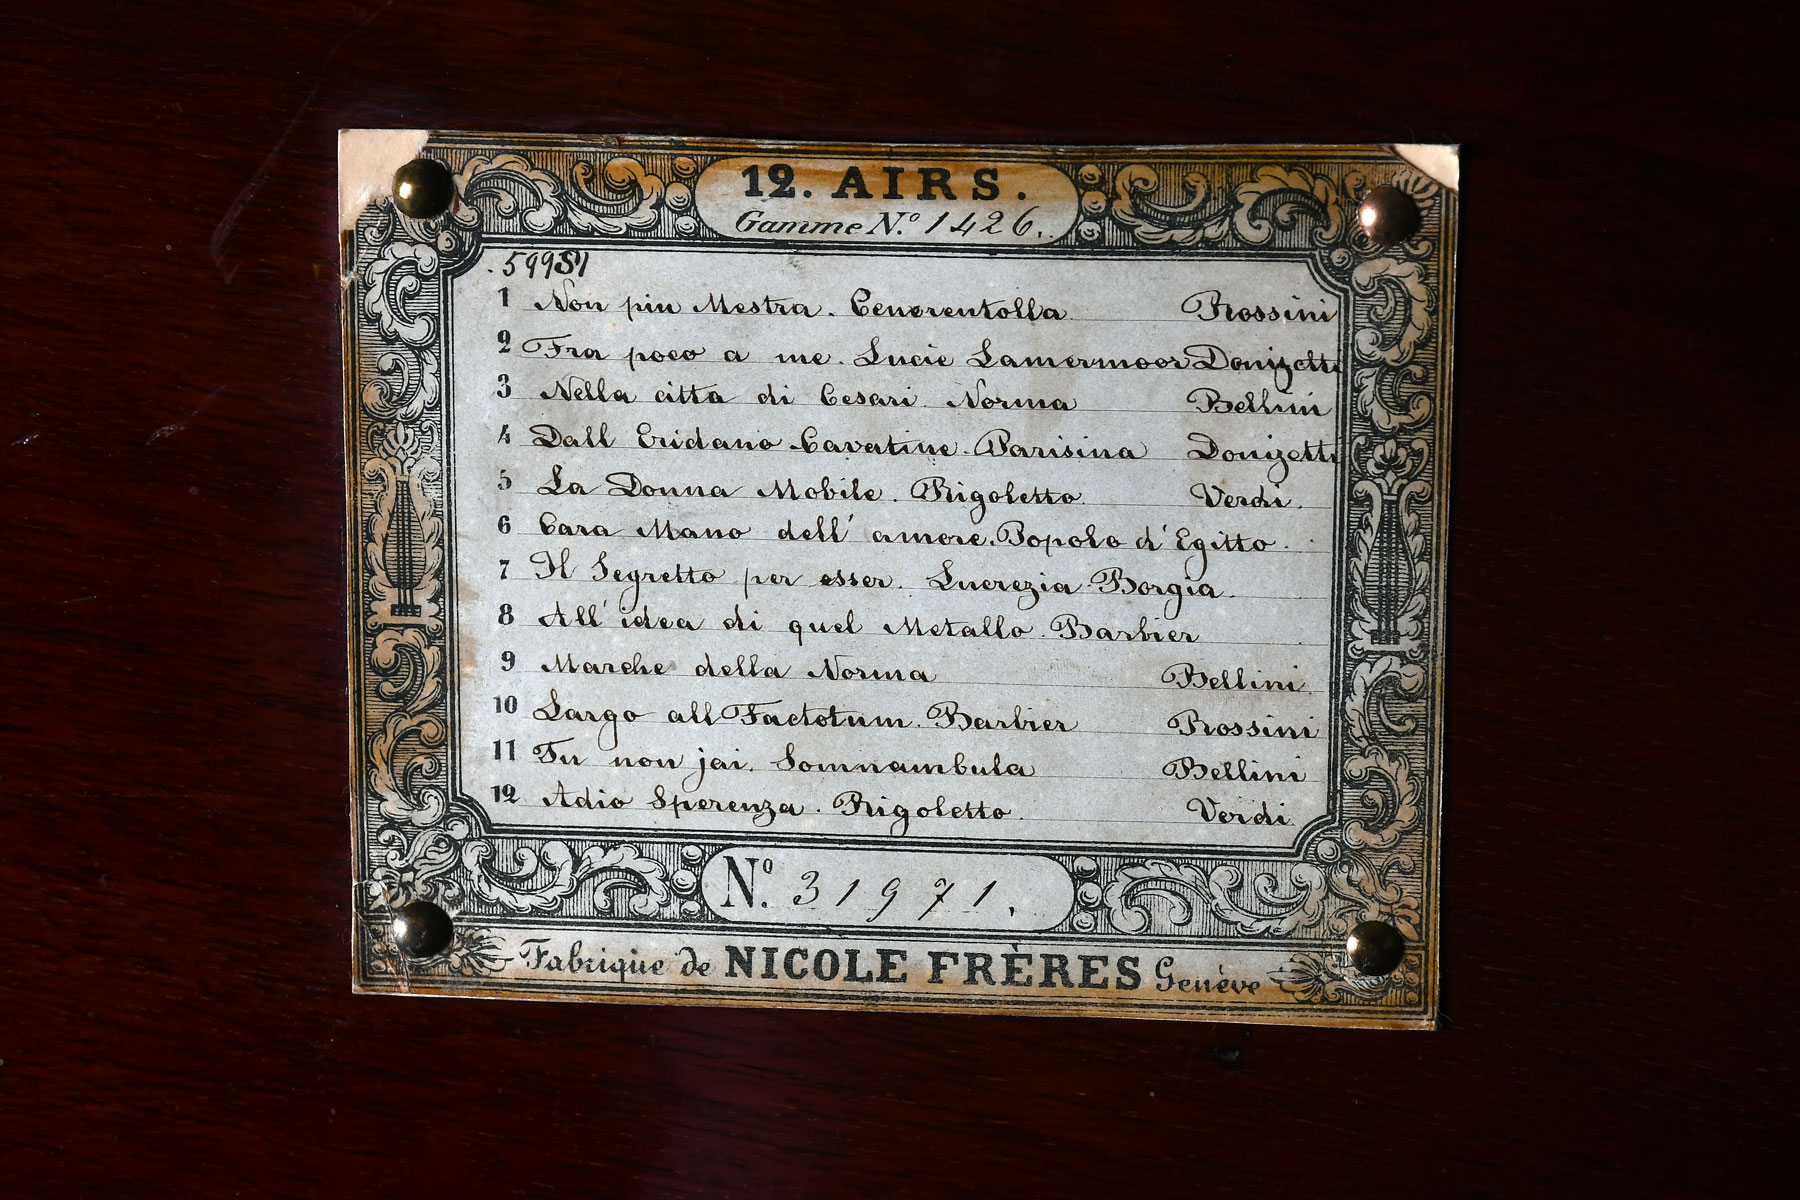 12. AIRS.
Gamme No. 1426.
59981
1 Non piu Mestra. Cenerentolla Rossini
2 Fra poco a me. Lucie Lamermoor Donizetti
3 Nella citta di Cesari Norma Bellini
4 Dall Eridano Cavatine. Parisina Donizetti
5 La Donna Mobile. Rigoletto Verdi.
6 Cara Mano dell' amore. Popolo d'Egitto.
7 Il Segretto per esser. Lucrezia Borgia.
8 All' idea di quel Metallo. Barbier
9 Marche della Norma Bellini.
10 Largo all Factotum. Barbier Rossini
11 Tu non jai. Somnambula Bellini
12 Adio Sperenza. Rigoletto Verdi
No. 31971.
Fabrique de NICOLE FRÈRES Genève